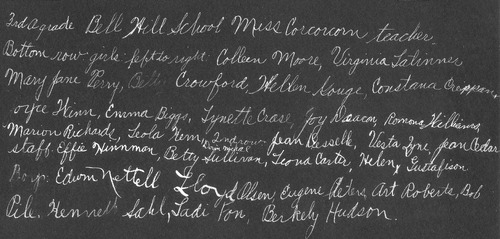 3rd a grade Bell Hill School Miss Corcorcorn teacher
Bottom row girls: left to right: Colleen Moore, Virginia
Mary Jane Perry, Crowford, Hellen Gouge, Constana
Hinn, Emma Biggs, Lynette Crase, Joy Deacon, Romona Williams,
Marion Richards, Leola Kern, 2nd row Jean Vesta Jean Cedar
staff. Effie Hinnman, Betty Sullivan, Leona Carter, Helen, Gustafison
Boys. Edwin Nettell Lloyd Olsen, Eugene Peters, Art Roberts, Bob
Pile. Kenneth Sahl, Tadi Pon, Berkely Hudson.